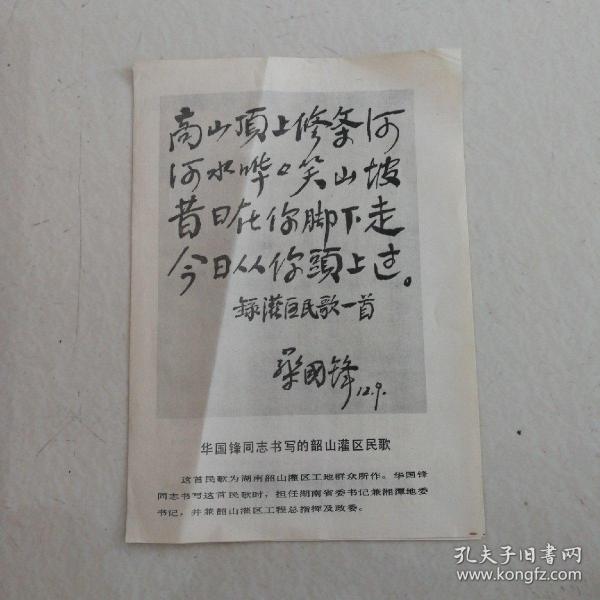 高山頂上修条河
河水哗々笑山坡
昔日在你脚下走
今日从你頭上过。
録灌区民歌一首
华國锋
12.9.
华国锋同志书写的韶山灌区民歌
这首民歌为湖南韶山灌区工地群众所作。华国锋
同志书写这首民歌时，担任湖南省委书记兼湘潭地委
书记，并兼韶山灌区工程总指挥及政委。
孔夫子旧书网
www.kongfz.com